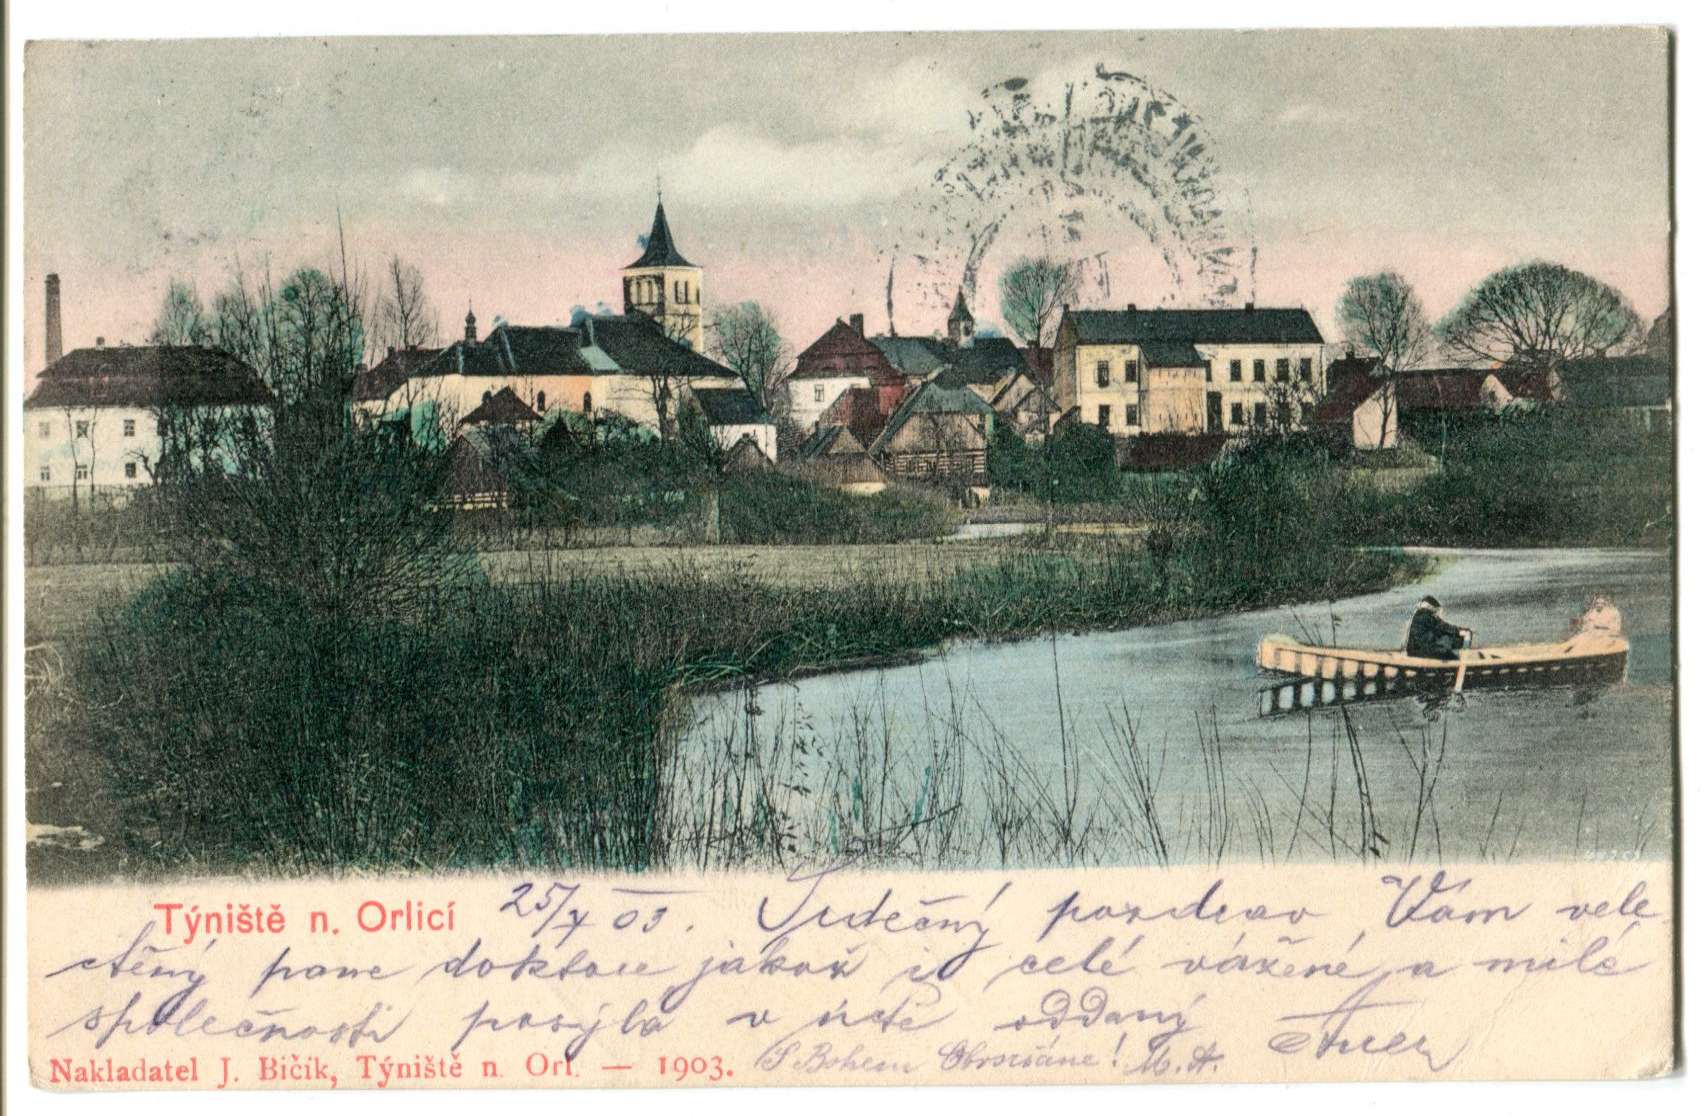 Týniště n. Orlicí 25/X 03. Srdečný pozdrav Vám vele-
ctěný pane doktore jakož i celé vážené a milé
společnosti posýla v úctě oddaný
Nakladatel J. Bičík, Týniště n. Orl. — 1903. S Bohem ! M. A.